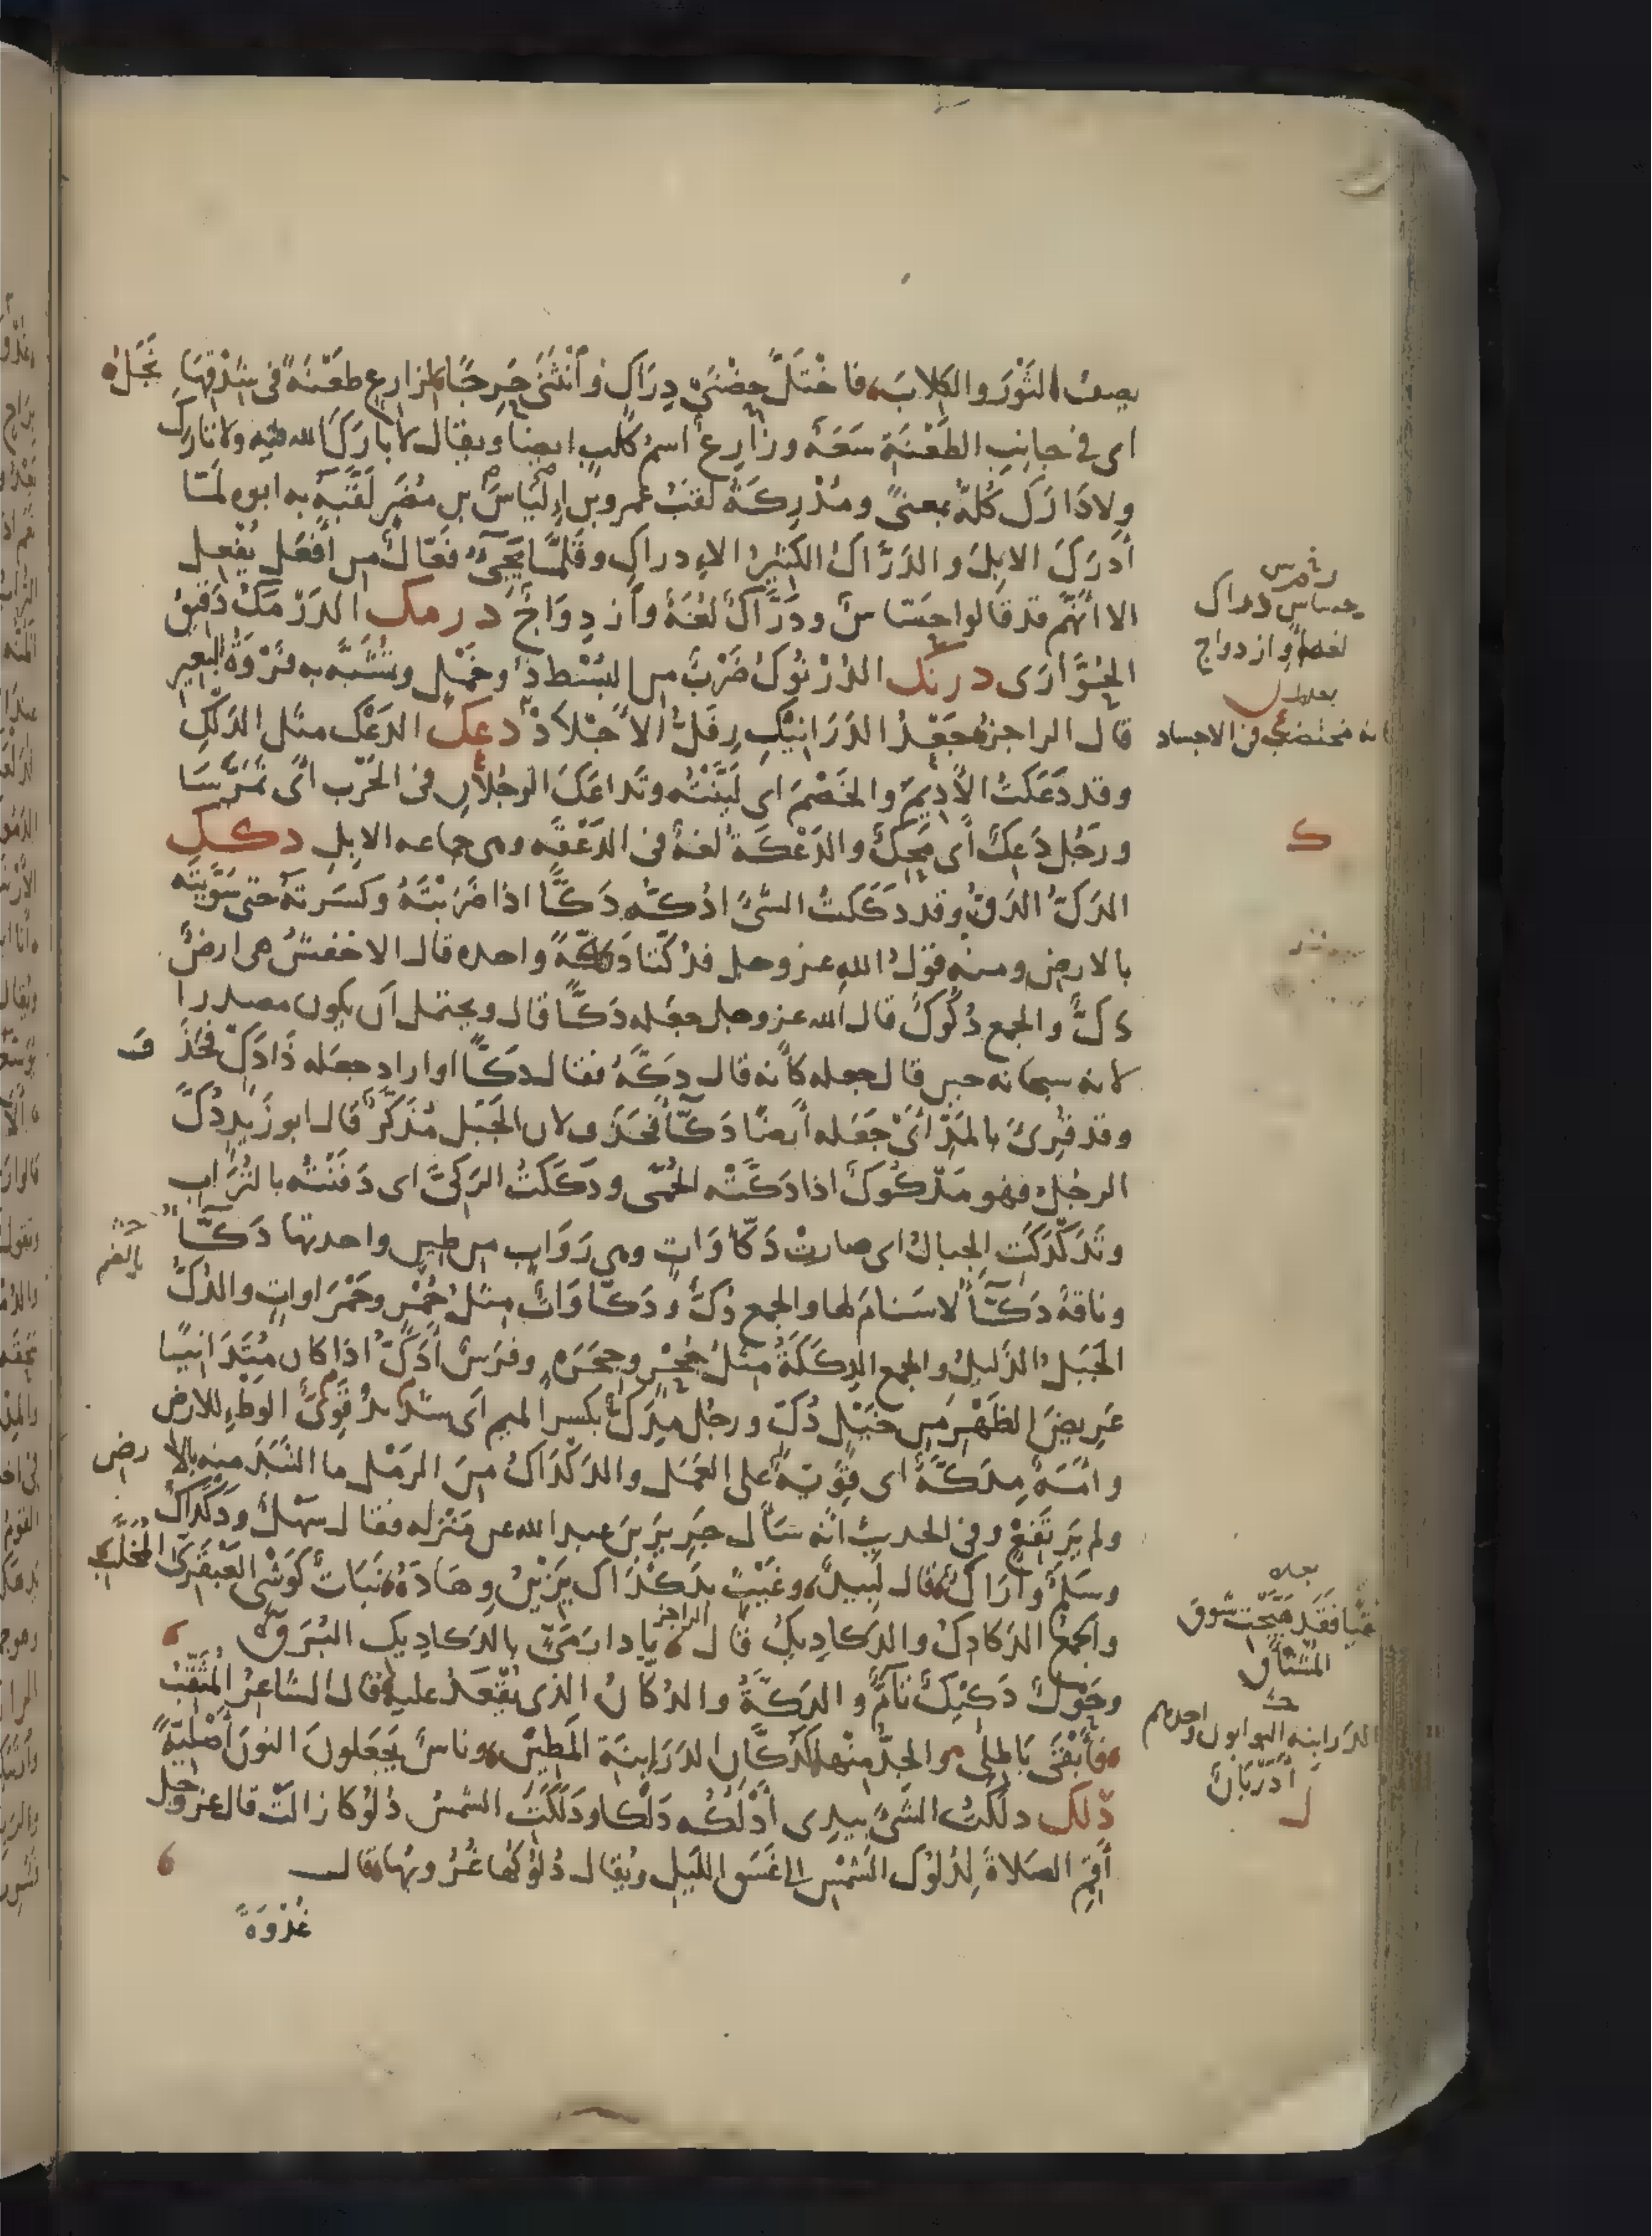 يصف الثَّوْرَ والكِلابَ فاخْتَلَّ حِضْنَيْ دِرَاكٍ وَأنْثَنَى حَرِجًا لزارِعٍ طَعْنَةٌ في شِدْقِهَا نَجَلُ
اى في جانب الطَّعْنَةِ سَعَةٌ وزَارِعٌ اسمُ كَلبٍ ايضا ويقال لا بارَكَ الله فيه ولا تارَكَ
ولا دَارَكَ كُلُّهُ بمعنًى ومُدْرِكَةُ لقبُ عمرو بن إِلْيَاسَ بن مُضَرَ لَقَّبَهُ به ابوه لَمّا
أَدْرَكَ الابلَ والدَرَّاكُ الكثيرُ الإدراكِ وقَلَّمَا يَجِىءُ فَعَّالٌ من أفْعَلَ يُفْعِلُ
الا انَّهُم قد قالوا حَسَّاسٌ ودَرَّاكٌ لغةٌ وازدِوَاجٌ درمك الدَرْمَكُ دَقِيقُ
الحُوَّارَى درنك الدُرْنُوكُ ضَرْبٌ من البُسُطِ ذو خَمْلٍ وتُشَبَّهُ به فَرْوَةُ البَعيرِ
قال الراجز جَعْدُ الدَرَانِيكِ رِفَلُّ الاَجْلادْ دعك الدَعْكُ مثل الدَلْكِ
وقد دَعَكْتُ الأَدِيمَ والخَصْمَ اى لَيَّنْتُه وتَداعَكَ الرجُلانِ في الحَرْب أى تَمَرَّسَا
ورَجُلٌ دَعِكٌ أى مَحِكٌ والدَعْكَةُ لغةٌ في الدَعْقَه وهى جماعه الابلِ دكك
الدَكُّ الدَقُّ وقد دَكَكْتُ الشَّىْءَ ادُكُّهُ دَكًّا اذا ضَرَبْتَهُ وكسَرتَهُ حتى سَوَّيْتَه
بالارض ومنه قولُ اللهِ عز وجل فدُكَّتا دَكَّةً واحده قال الاخفشُ هى ارضٌ
دَكٌّ والجمع دُكُوكٌ قال الله عز وجل جعَله دَكًّا قال ويحتمل أن يكون مصدرا
لانه سبحانه حين قال جعله كأنه قال دَكَّهُ فقال دَكًّا او اراد جعَله ذَا دَكٍّ فحَذَف
وقد قُرِئَ بالمَدّ أى جَعَله أيضا دَكَّاءَ فحَذَف لان الجَبَل مُذَكَّرٌ قال ابو زَيْدٍ دُكَّ
الرجُل فهو مَدْكُوكٌ اذا دَكَّتْه الحُمَّى ودَكَكْتُ الرَكِىَّ اى دَفَنْتُه بالتُرَابِ
وتَدَكْدَكَتِ الجبالُ اى صارتْ دَكَّاوَاتٍ وهى رَوَابٍ من طين واحدتها دَكَّاءُ
وناقةٌ دَكَّاءُ لا سَنامَ لها والجمع دُكٌّ ودَكَّاوَاتٌ مثلُ حُمْرٍ وحَمْرَاواتٍ والدُكُّ
الجَبَلُ الذَليلُ والجمع الدِكَكَةُ مثلُ جُحْرٍ وجِحَرَةٍ وفرَسٌ أَدَكُّ اذا كان مُتَدَانِيًا
عَرِيضَ الظَهْرِ من خَيْلٍ دُكٍّ ورجُلٌ مِدَكٌّ بكسر الميم أى شَدِيدٌ قَوِىُّ الوَطْءِ للارض
وامَةٌ مِدَكَّةٌ اى قَوِيَّةٌ على العَمَل والدَكْدَاكُ من الرَمْلِ ما التَبَدَ منه بالارض
ولم يَرْتَفِعْ وفي الحديث انّه سَأَل جَرِيرَ بنَ عبد الله عن مَنْزله فقال سَهْلٌ ودَكْدَاكٌ
وسَلَمٌ وأَرَاكٌ قال لَبِيدٌ وغَيْثٍ بدَكْدَاكٍ يَزِينُ وِهَادَهُ نَبَاتٌ كوَشْىِ العَبْقَرِىِّ المُخَلَّبِ
والجمعُ الدَكادِكُ والدَكادِيكُ قال الراجز يا دارَ مَىّ بالدَكادِيكِ البُرَقْ
وحَوْلٌ دَكِيكٌ تَامٌّ والدَكَّةُ والدُكَّانُ الذى يُقْعَدُ عليه قال الشاعرُ المُثَقِّبُ
فأَبْقَى بَاطِلِى والجِدُّ مِنْها كَدُكَّانِ الدَرَابِنَةِ المَطِينِ وناسٌ يَجْعَلونَ النونَ أَصْلِيّةً
دلك دلَكْتُ الشَىْءَ بيدى أَدْلُكُه دَلْكًا ودَلَكَتِ الشمسُ دُلُوكًا زالَتْ قال عز وجل
أَقِمِ الصَلاةَ لِدُلُوكِ الشَمْسِ الى غَسَقِ اللَيلِ ويُقال دُلُوكُها غُرُوبُها قال
غُدْوَةً
حساس دراك
لغة وازدواج
ك
بالضم
الدرابنه البوابون واحدهم
دَرْبَانٌ
ل